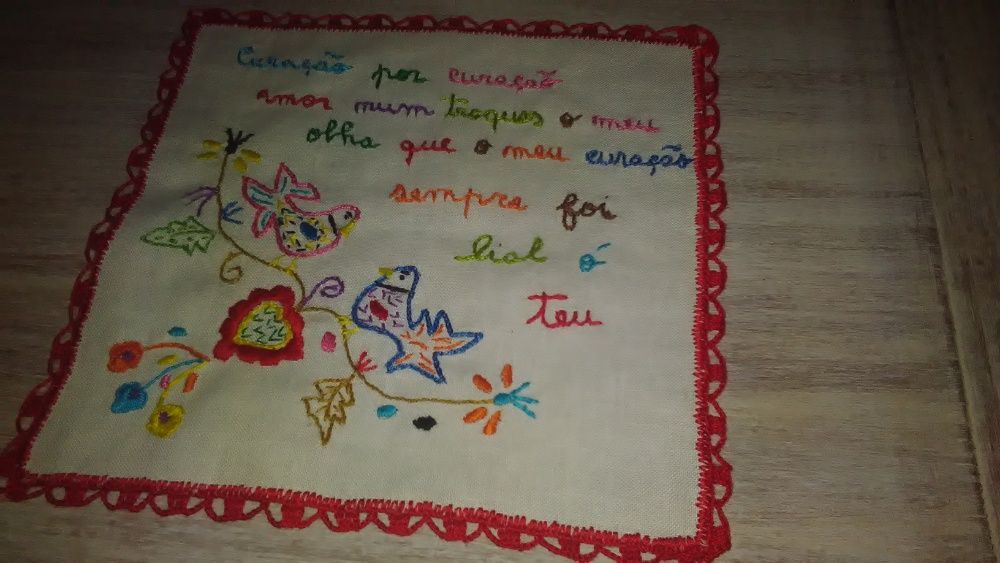 Curação por curação
amor num troques o meu
olha que o meu curação
sempre foi
lial ó
teu